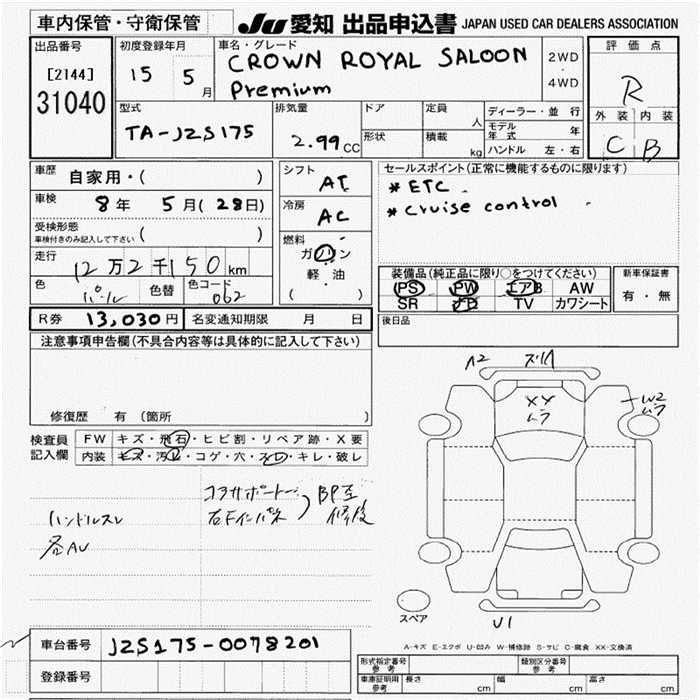 車内保管・守衛保管
JU 愛知 出品申込書 JAPAN USED CAR DEALERS ASSOCIATION
出品番号
[2144]
31040
初度登録年月
15 5月
車名・グレード
CROWN ROYAL SALOON
Premium
2WD
・
4WD
評価点
R
外装 内装
C B
型式
TA-JZS175
排気量
2.99 CC
ドア
形状
定員 人
積載 kg
ディーラー・並行
モデル年式 年
ハンドル 左・右
車歴 自家用・( )
車検 8年 5月(28日)
受検形態
車検付きのみ記入して下さい ( )
走行 12万2千150km
色 パール 色替 色コード 062
シフト AT
冷房 AC
燃料
ガソリン
・
軽・油
( )
セールスポイント(正常に機能するものに限ります)
*ETC
*cruise control
装備品(純正品に限り○をつけてください)
PS PW エアB AW
SR ナビ TV カワシート
新車保証書
有・無
R券 13,030円 名変通知期限 月 日
後日品
注意事項申告欄(不具合内容等は具体的に記入して下さい)
修復歴 有(箇所 )
検査員
記入欄
FW キズ・飛石・ヒビ割・リペア跡・X要
内装 キズ・汚レ・コゲ・穴・スレ・キレ・破レ
コアサポート
右Fインパネ
BP至
修復
ハンドルスレ
各AU
A2
XY
ムラ
W2
ムラ
スペア
U1
A-キズ E-エクボ U-凹み W-補修跡 S-サビ C-腐食 XX-交換済
車台番号 JZS175-0078201
登録番号
形式指定番号
参考
類別区分番号
参考
車庫証明用
参考
長さ cm 幅 cm 高さ cm